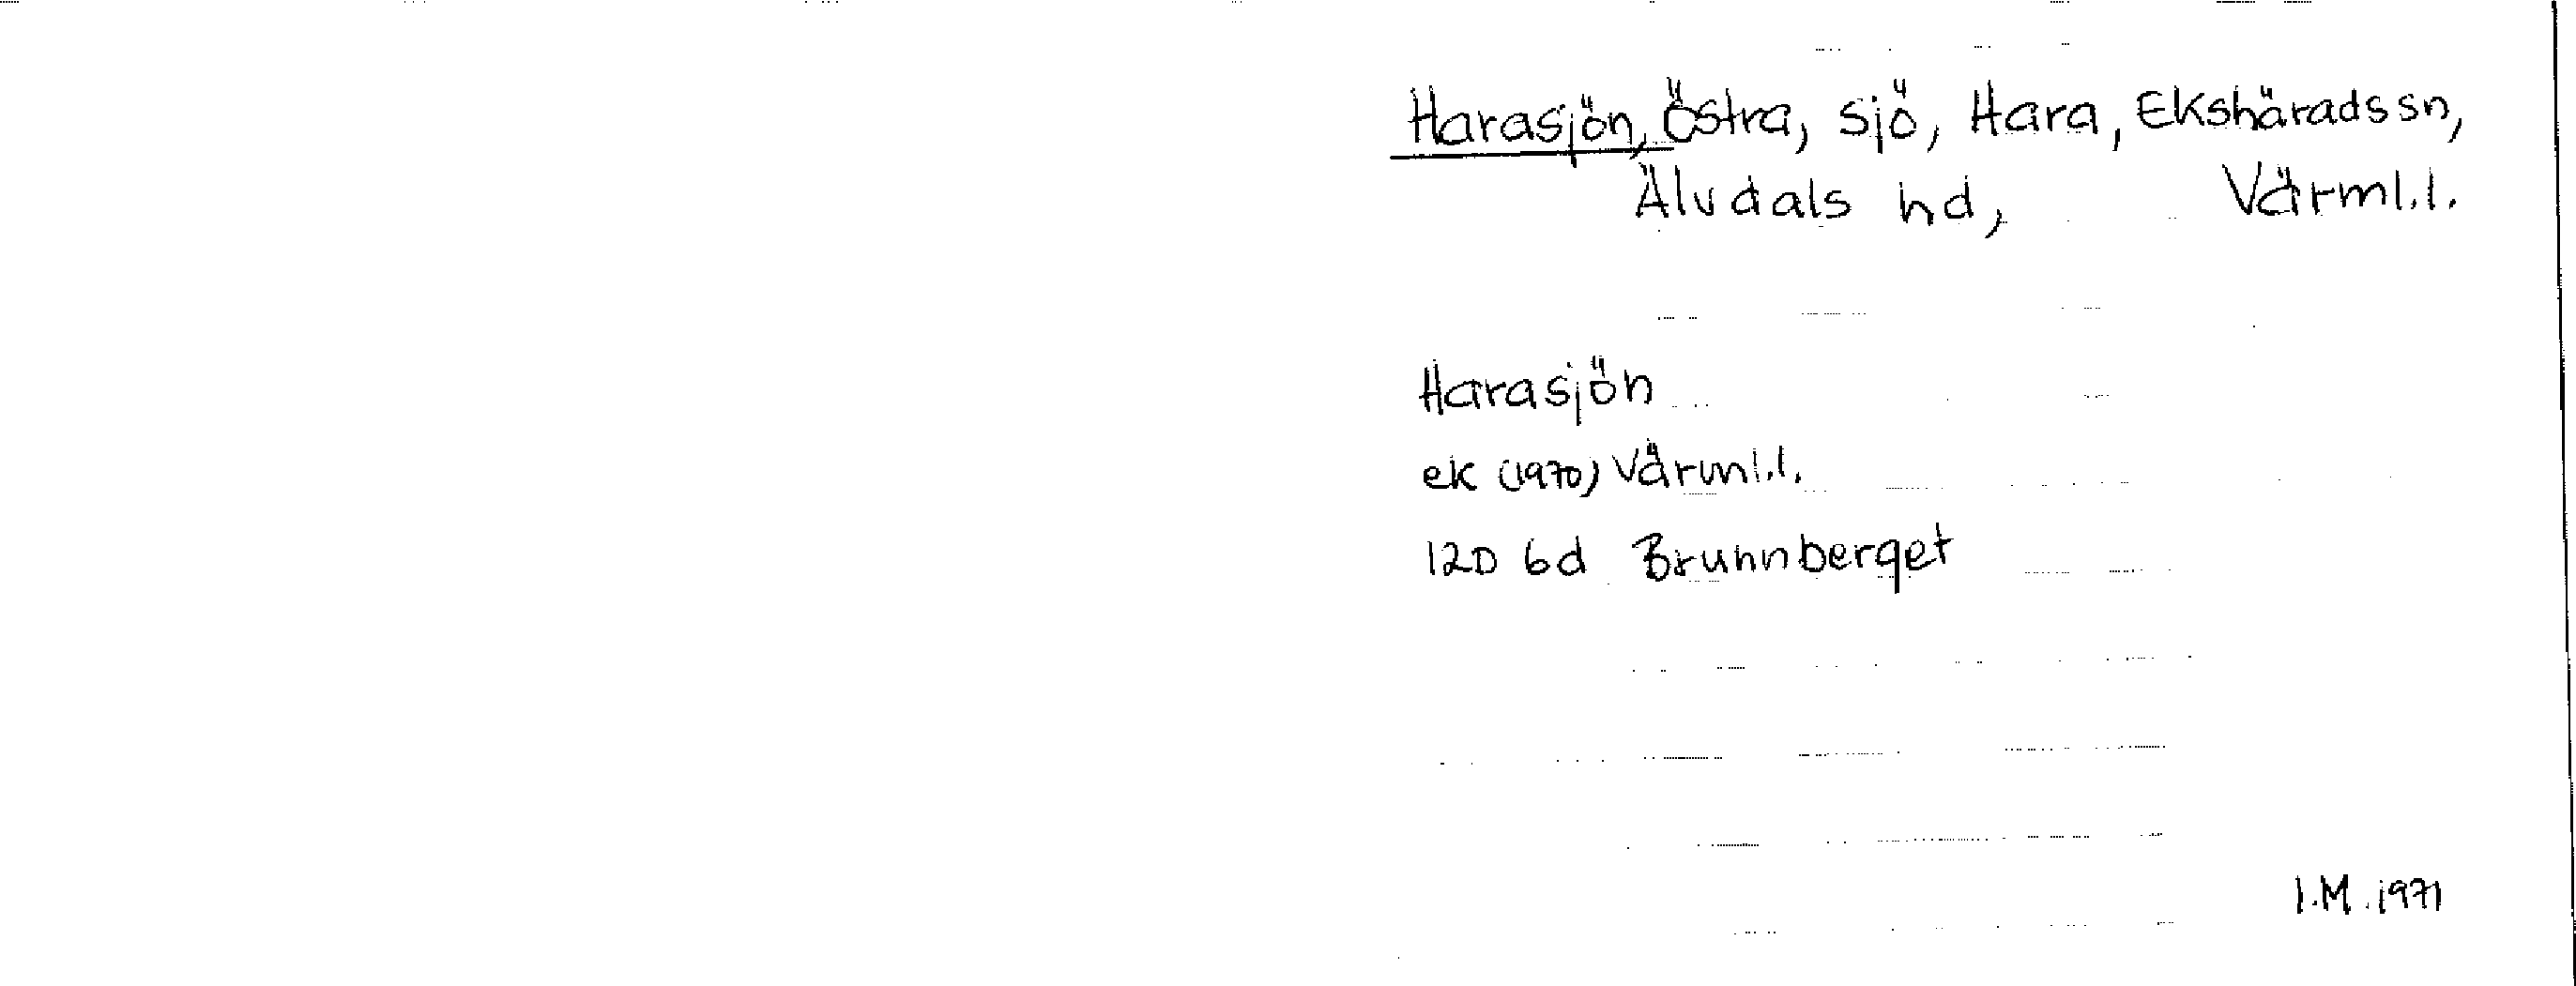 Harasjön, Östra, sjö, Hara, Ekshärads sn,
Älvdals hd, Värml.l.
Harasjön
ek (1970) Värml.l.
12D 6d Brunnberget
I.M. 1971